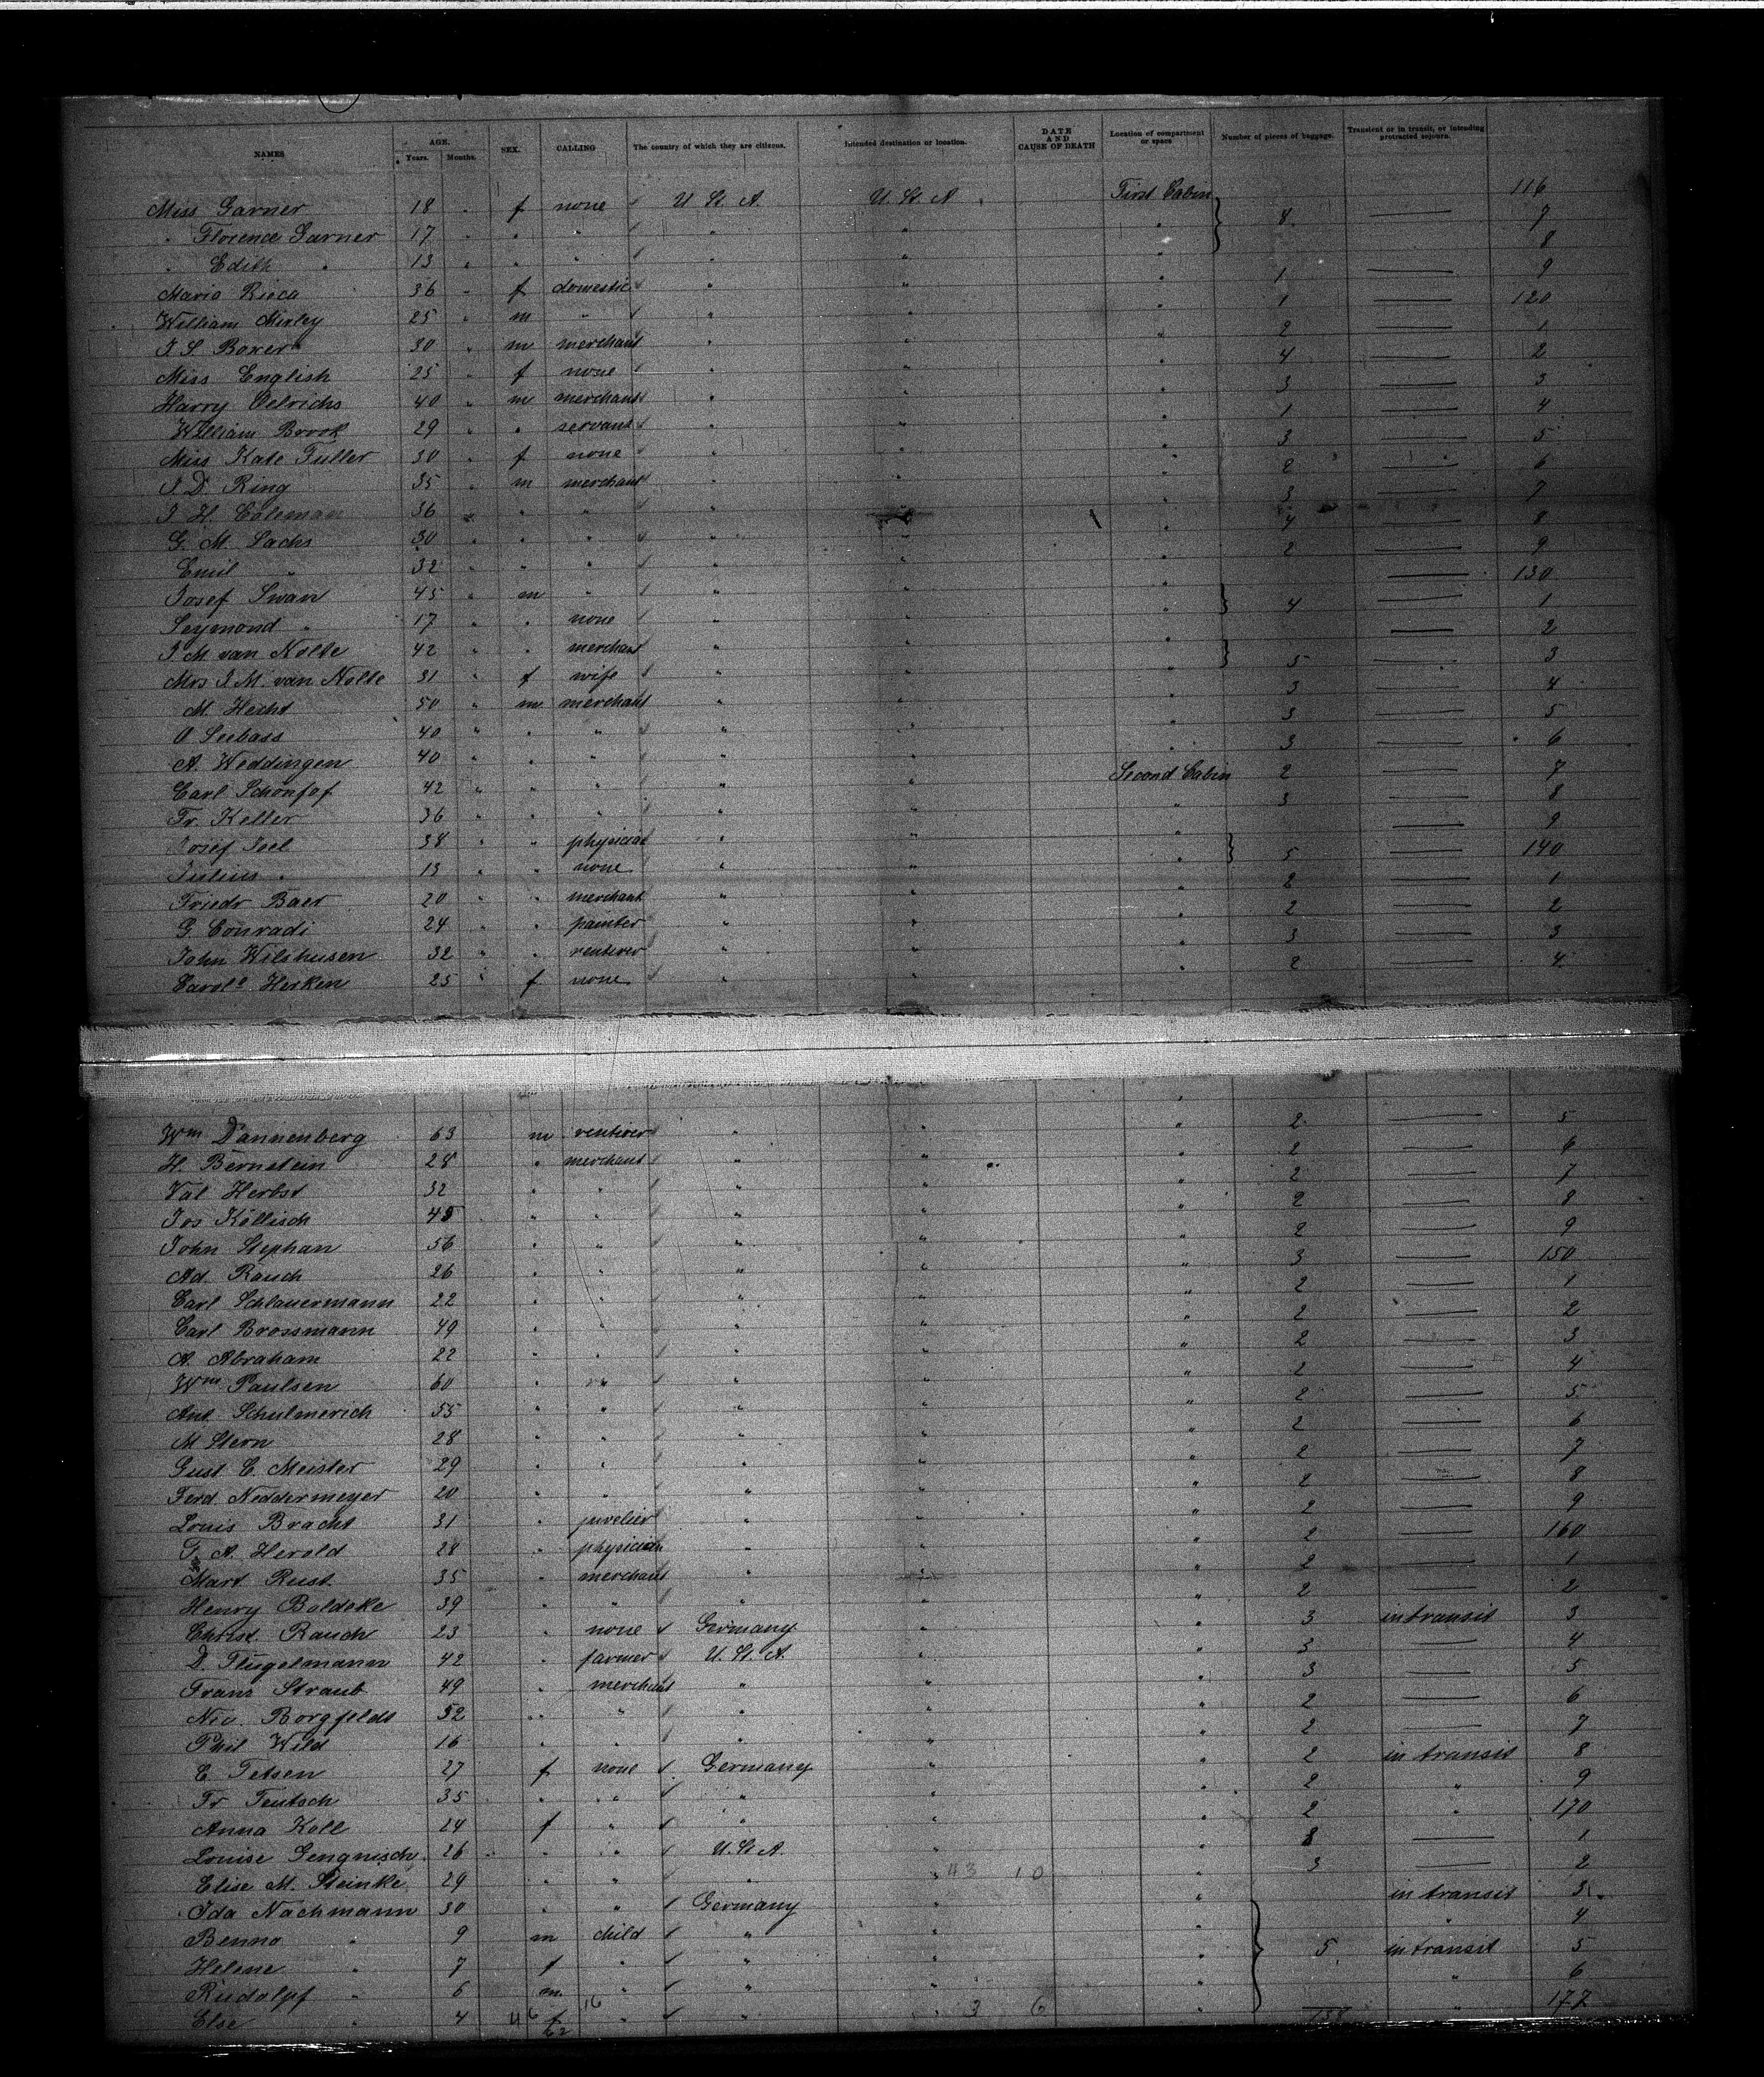 NAMES AGE. Years. Months. SEX. CALLING The country of which they are citizens. Intended destination or location. DATE AND CAUSE OF DEATH Location of compartment or space Number of pieces of baggage. Transient or in transit, or intending protracted sojourn.
Miss Garner 18 " f none U St A. U. St. A First Cabin 116
" Florence Garner 17 " " " " " " 8 — 7
" Edith " 13 " " " " " " 8
Maria 36 " f domestic " " " 1 — 9
William Mirley 25 " m " " " " 1 — 120
J S Boxer 30 " m merchant " " " 2 — 1
Miss English 25 " f none " " " 4 — 2
Harry Oelrichs 40 " m merchant " " " 3 — 3
William Brook 29 " " servant " " " 1 — 4
Miss Kate Fuller 30 " f none " " " 3 — 5
J. D. Ring 35 " m merchant " " " 2 — 6
J H. Coleman 36 " " " " " " 3 — 7
G. M. Sachs 30 " " " " " " 4 — 8
Emil " 32 " " " " " " 2 — 9
Josef Swan 45 " m " " " " — 130
Seymond " 17 " " none " " " 4 — 1
J M. van Nolte 42 " " merchant " " " — 2
Mrs J. M. van Nolte 31 " f wife " " " 5 — 3
M. Hecht 50 " m merchant " " " 3 — 4
O Seebass 40 " " " " " " 3 — 5
A. Weddingen 40 " " " " " " 3 — 6
Carl 42 " " " " " Second Cabin 2 — 7
Fr. Keller 36 " " " " " " 3 — 8
Josef Joel 38 " " physician " " " — 9
Julius " 13 " " none " " " 5 — 140
Friedr Baer 20 " " merchant " " " 2 — 1
G. Conradi 24 " " painter " " " 2 — 2
John Wilshusen 32 " " rentirer " " " 3 — 3
Carole Herken 25 " f none " " 2 — 4
Wm Dannenberg 63 m rentirer " " " 2 — 5
H. Bernstein 28 " merchant " " " 2 — 6
Val Herbst 32 " " " " " 2 — 7
Jos Köllisch 45 " " " " " 2 — 8
John Stephan 56 " " " " " 2 — 9
Ad. Rauch 26 " " " " " 3 — 150
Carl Schlauermann 22 " " " " " 2 — 1
Carl Brossmann 49 " " " " " 2 — 2
A. Abraham 22 " " " " " 2 — 3
Wm Paulsen 60 " " " " " 2 — 4
Ant. Schulmerich 55 " " " " " 2 — 5
M Stern 28 " " " " " 2 — 6
Gust C. Meister 29 " " " " " 2 — 7
Ferd. Neddermeyer 20 " " " " " 2 — 8
Louis Bracht 31 " juvelier " " " 2 — 9
A. Herold 28 " physician " " " 2 — 160
Mart. Rust. 35 " merchant " " " 2 — 1
Henry Boldeke 39 " " " " " 2 — 2
Christ. Rauch 23 " none Germany " " 3 in transit 3
D. Flügelmann 42 " farmer U. St. A. " " 3 — 4
Franz Straub 49 " merchant " " " 3 — 5
Nic. Borgfeldt 52 " " " " " 2 — 6
Phil Wild 16 " " " " " 2 — 7
C. Tetsen 27 f none Germany " " 2 in transit 8
Fr Teutsch 35 " " " " " 2 " 9
Anna Koll 24 f " " " " 2 " 170
Louise Gengnisch 26 " " U. St A. " " — 1
Elise M. Steinke 29 " " " " 43 10 " 3 — 2
Ida Nachmann 30 " " Germany " " in transit 3
Benno " 9 m child " " " " 4
Helene " 7 f " " " " 5 in transit 5
Rudolpf " 6 m. " " " " " 6
Else " 4 f 16 " " " 3 6 " " 177